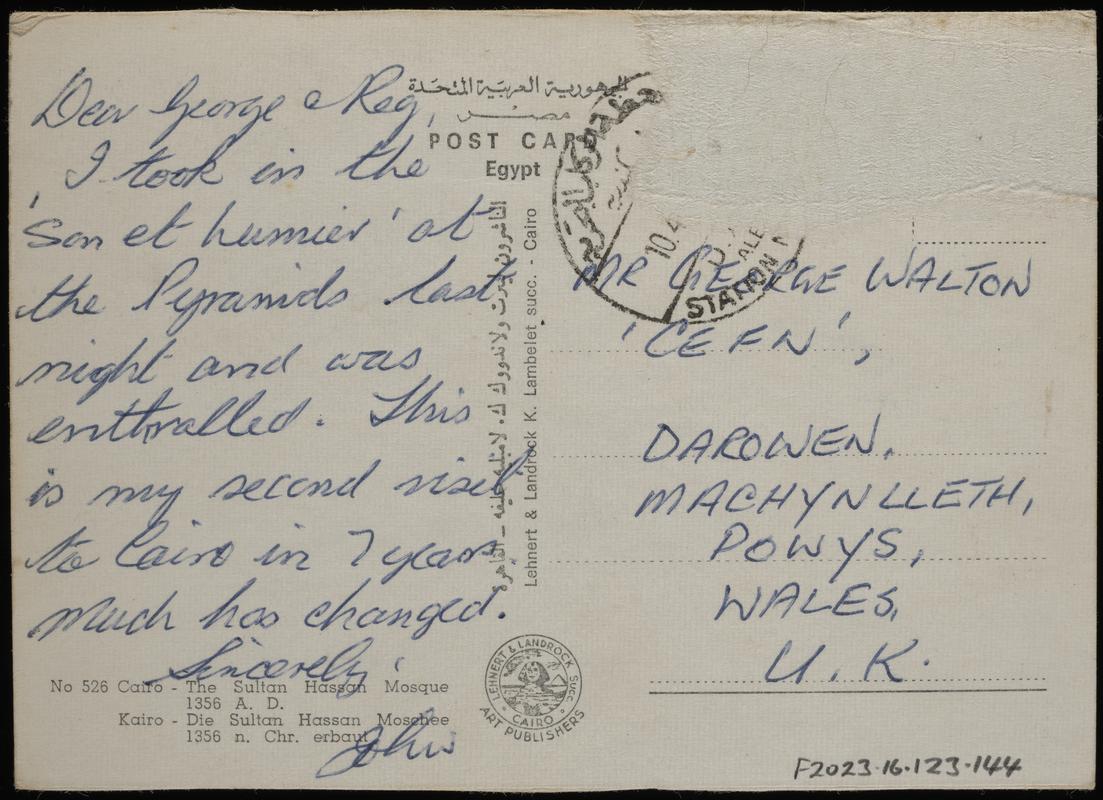 الجمهورية العربية المتحدة
مصر
POST CARD
Egypt
Dear George & Reg,
I took in the
'Son et Lumier' at
the Pyramids last
night and was
enthralled. This
is my second visit
to Cairo in 7 years
Much has changed.
Sincerely,
John
No 526 Cairo - The Sultan Hassan Mosque
1356 A. D.
Kairo - Die Sultan Hassan Moschee
1356 n. Chr. erbaut
الناشرون
القاهرة
Lehnert & Landrock K. Lambelet succ. - Cairo
LEHNERT & LANDROCK SUCC.
CAIRO
ART PUBLISHERS
10.4
ALE
STATION
MR GEORGE WALTON
'CEFN',
DAROWEN,
MACHYNLLETH,
POWYS,
WALES,
U.K.
F2023.16.123.144